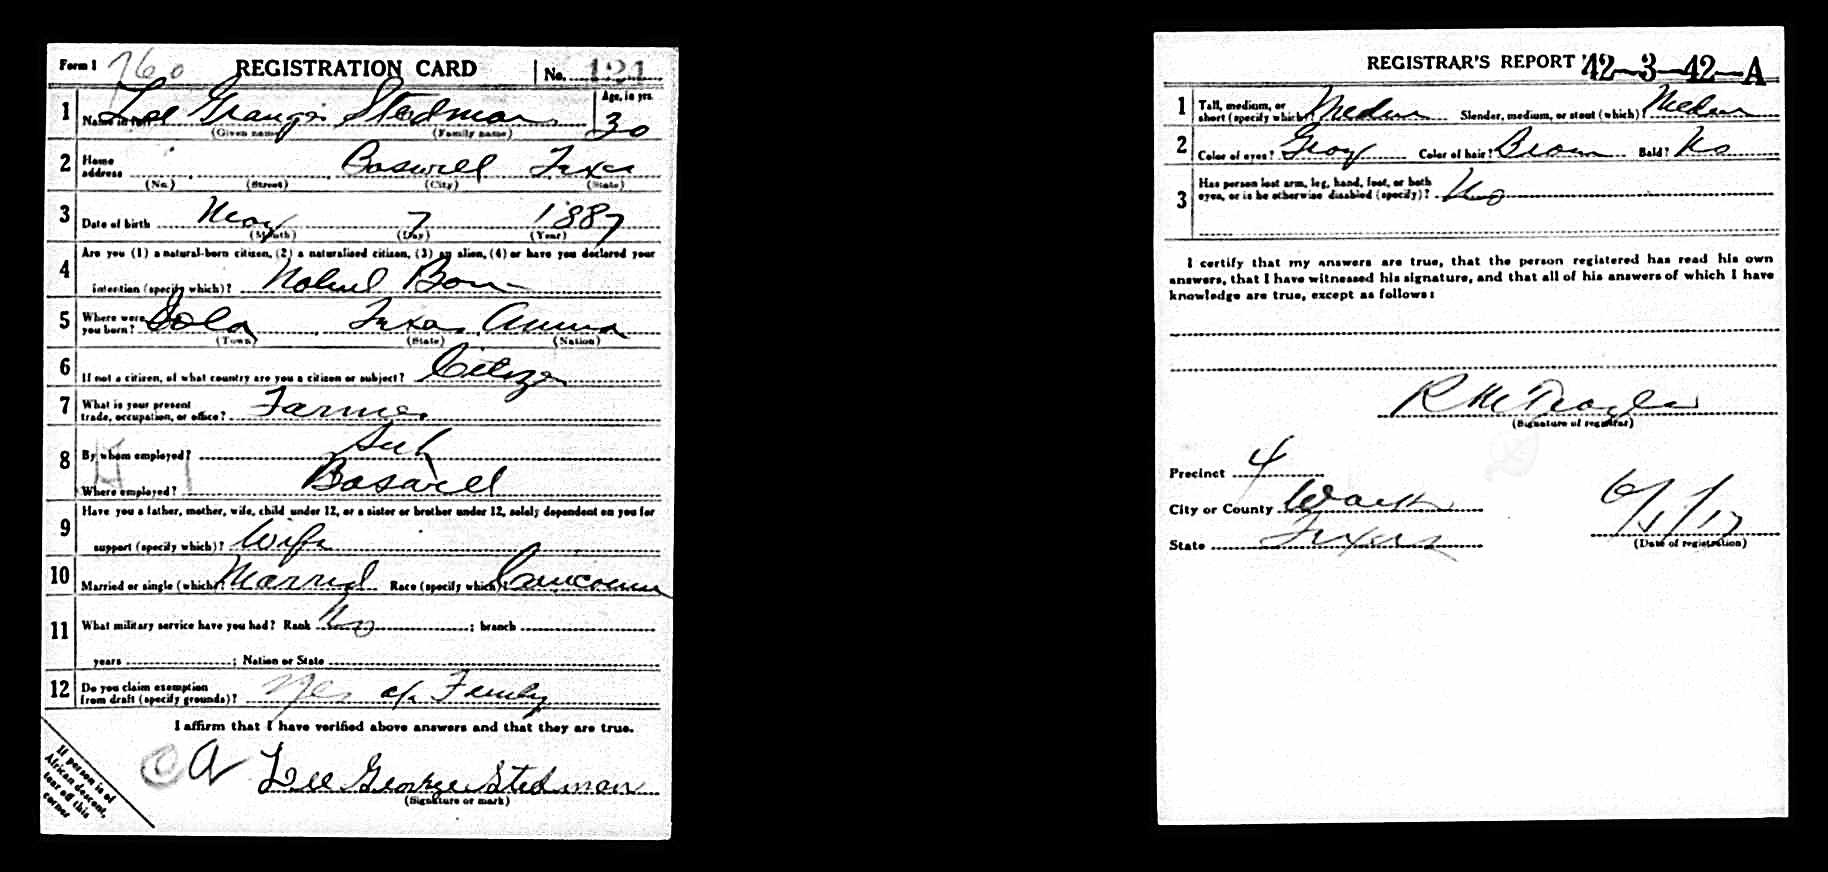 Form 1 760 REGISTRATION CARD No. 121
1 Name in full Lee Grange Stedman Age, in yrs. 30
(Given name) (Family name)
2 Home address Boswell Texas
(No.) (Street) (City) (State)
3 Date of birth May 7 1887
(Month) (Day) (Year)
4 Are you (1) a natural-born citizen, (2) a naturalized citizen, (3) an alien, (4) or have you declared your
intention (specify which)? Natural Born
5 Where were you born? Texas America
(Town) (State) (Nation)
6 If not a citizen, of what country are you a citizen or subject? Citizen
7 What is your present trade, occupation, or office? Farmer
8 By whom employed? Self
Where employed? Boswell
9 Have you a father, mother, wife, child under 12, or a sister or brother under 12, solely dependent on you for
support (specify which)? Wife
10 Married or single (which)? Married Race (specify which)? Caucasian
11 What military service have you had? Rank No ; branch
years ; Nation or State
12 Do you claim exemption from draft (specify grounds)? Yes a/c Family
I affirm that I have verified above answers and that they are true.
Lee George Stedman
(Signature or mark)
If person is of
African descent,
tear off this
corner
REGISTRAR'S REPORT 42-3-42-A
1 Tall, medium, or short (specify which)? Medium Slender, medium, or stout (which)? Medium
2 Color of eyes? Gray Color of hair? Brown Bald? No
3 Has person lost arm, leg, hand, foot, or both
eyes, or is he otherwise disabled (specify)? No
I certify that my answers are true, that the person registered has read his own
answers, that I have witnessed his signature, and that all of his answers of which I have
knowledge are true, except as follows:
(Signature of registrar)
Precinct 4
City or County
State Texas 6/5/17
(Date of registration)